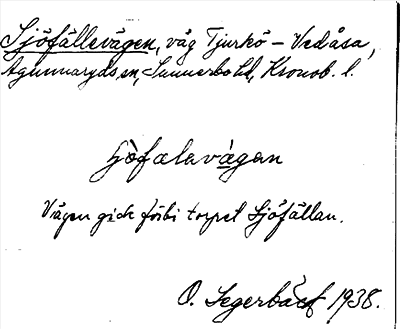 Sjöfällevägen, väg Tjurkö – Vedåsa,
Agunnaryds sn, Sunnerbo hd, Kronob. l.
sjòfælavàgən
Vägen gick förbi torpet Sjöfällan.
O. Segerbäck 1938.